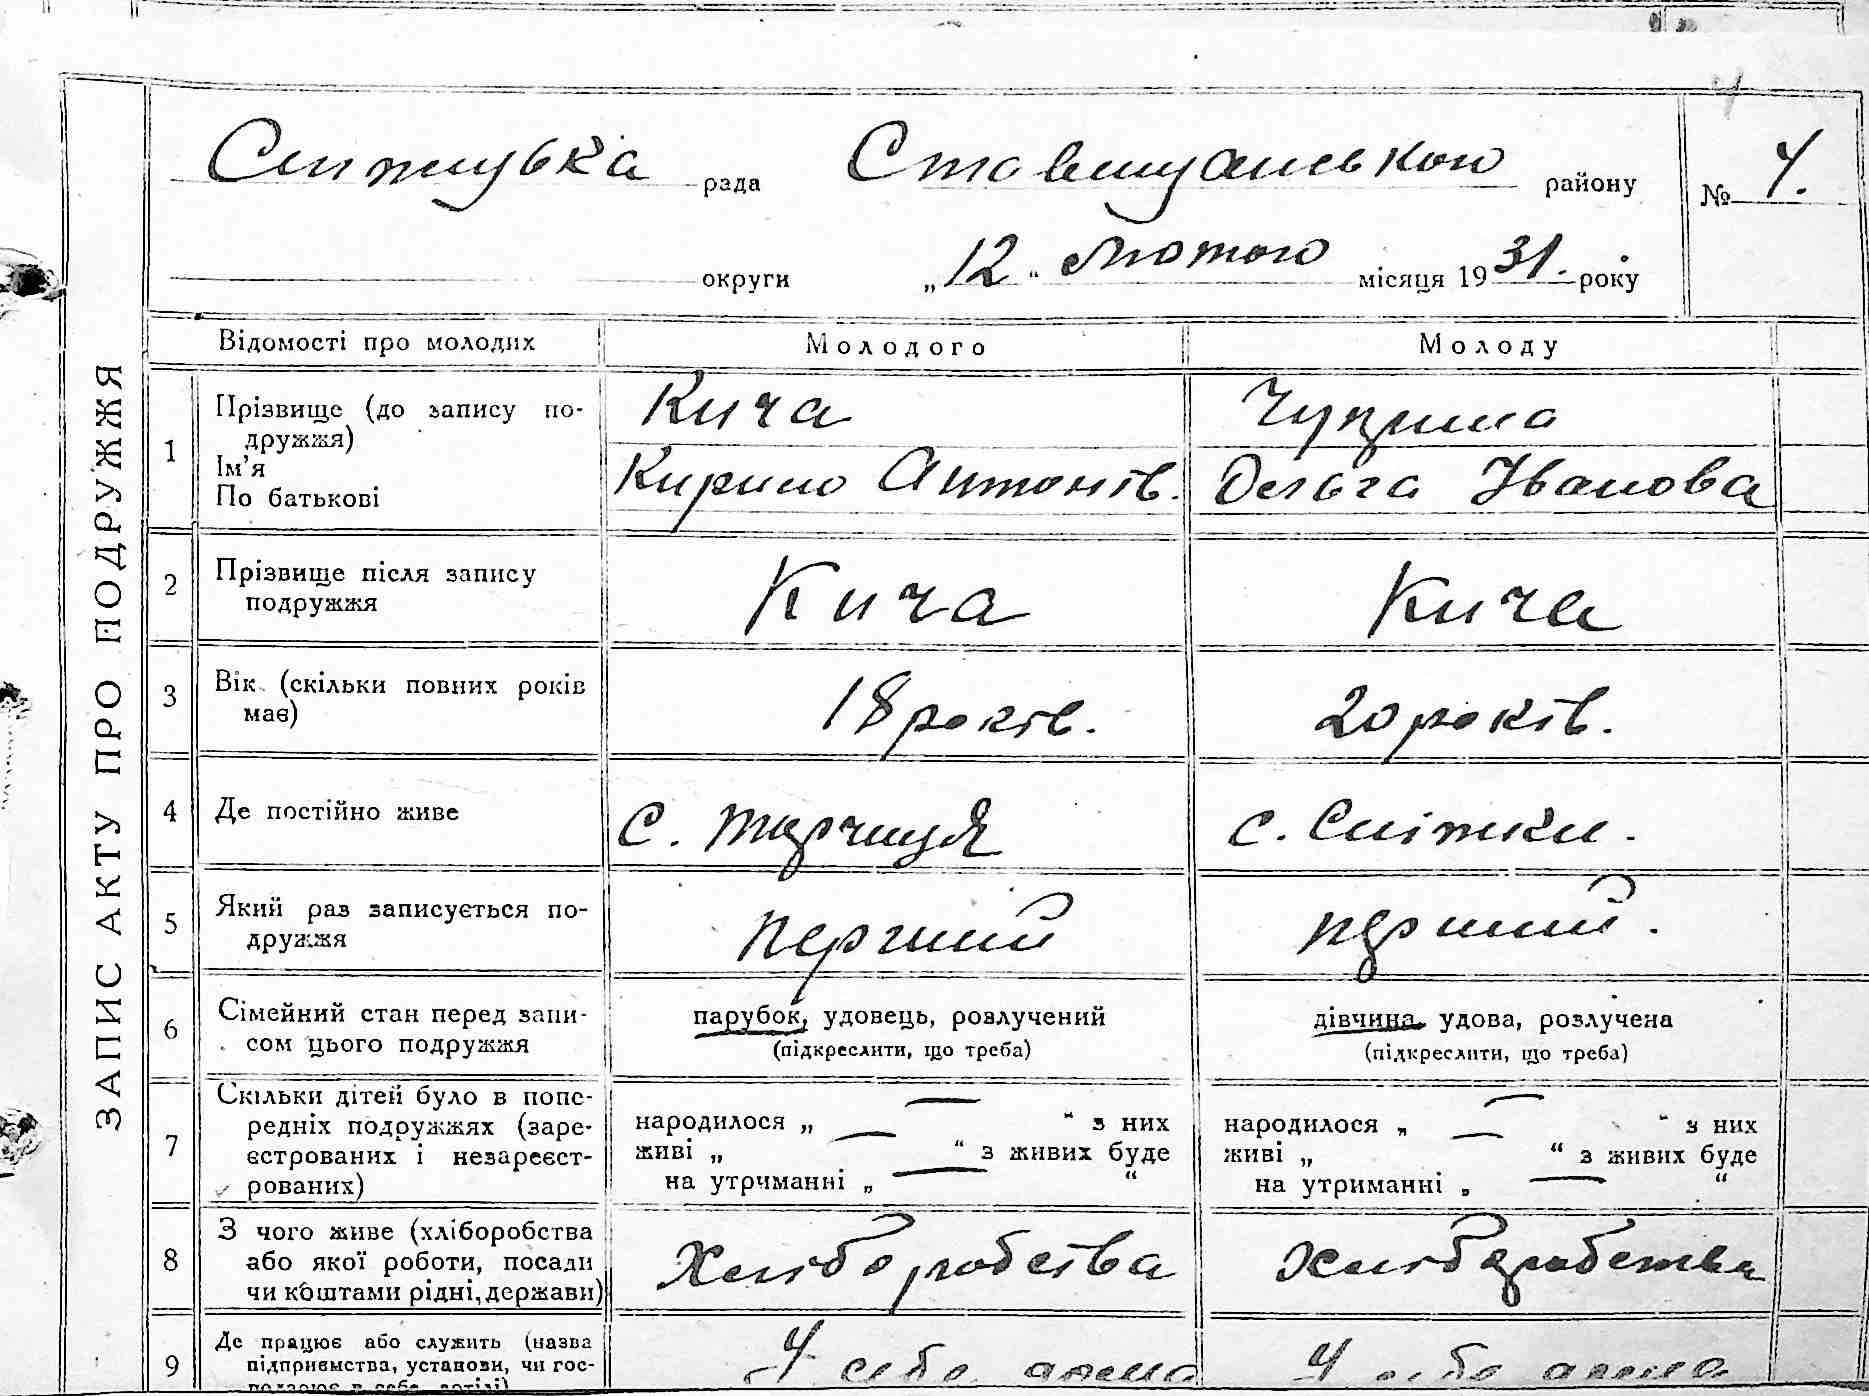 ЗАПИС АКТУ ПРО ПОДРУЖЖЯ
рада Ставищанського району № 4.
округи „12“ лютого місяця 1931. року
Відомості про молодих Молодого Молоду
1 Прізвище (до запису подружжя) Кича Чуприна
Ім'я
По батькові Кирило Антонів. Ольга Іванова
2 Прізвище після запису Кича Кича
подружжя
3 Вік (скільки повних років 18 років. 20 років.
має)
4 Де постійно живе с. с. Сніжки.
5 Який раз записується по- перший перший.
дружжя
6 Сімейний стан перед запи- парубок, удовець, розлучений дівчина, удова, розлучена
сом цього подружжя (підкреслити, що треба) (підкреслити, що треба)
7 Скільки дітей було в попе-
редніх подружжях (заре- народилося „ — “ з них народилося „ — “ з них
єстрованих і незареєст- живі „ — “ з живих буде живі „ — “ з живих буде
рованих) на утриманні „ — “ на утриманні „ — “
8 З чого живе (хліборобства
або якої роботи, посади Хліборобства Хліборобства
чи коштами рідні, держави)
9 Де працює або служить (назва У себе У себе
підприємства, установи, чи гос-